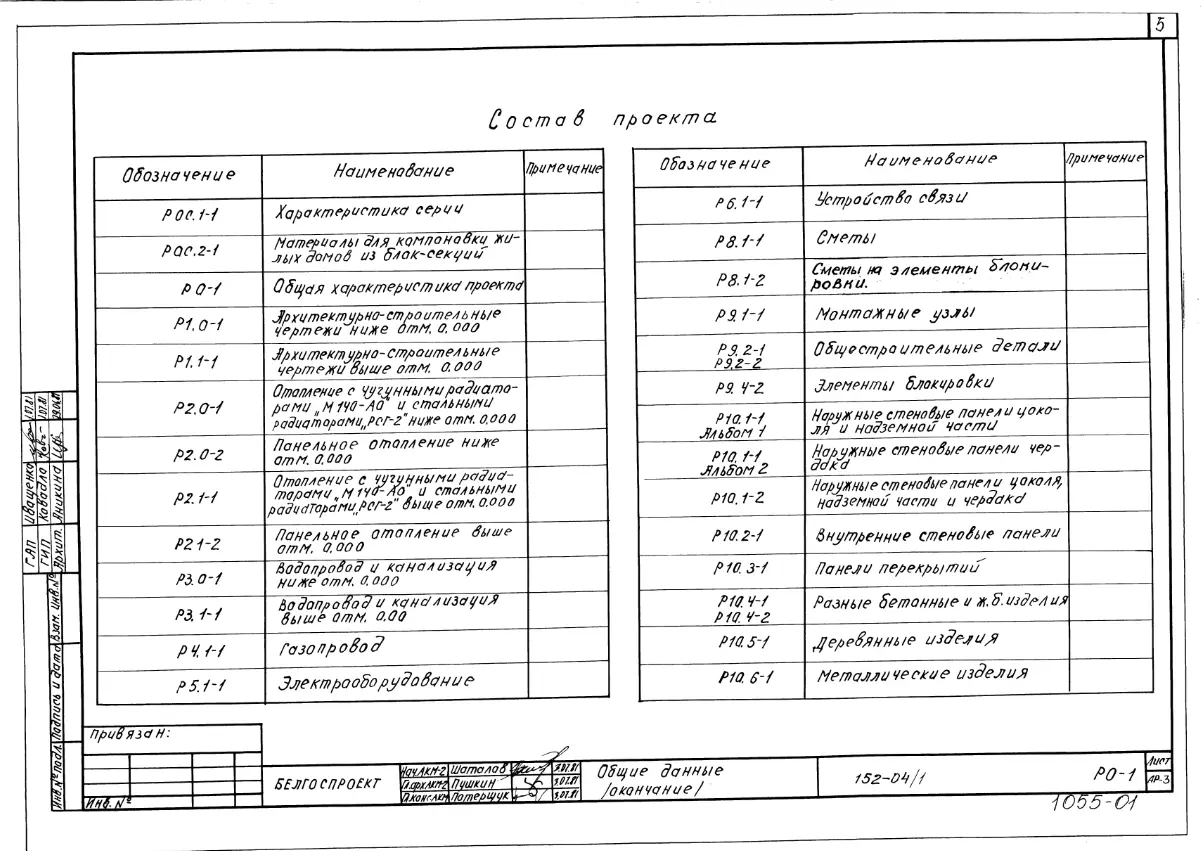 5
Состав проекта
Обозначение Наименование Примечание
Р0С.1-1 Характеристика серии
Р0С.2-1 Материалы для компановки жи-
лых домов из блок-секций
Р0-1 Общая характеристика проекта
Р1.0-1 Архитектурно-строительные
чертежи ниже отм. 0.000
Р1.1-1 Архитектурно-строительные
чертежи выше отм. 0.000
Р2.0-1 Отопление с чугунными радиато-
рами „М140-АО" и стальными
радиаторами „РСГ-2" ниже отм. 0.000
Р2.0-2 Панельное отопление ниже
отм. 0.000
Р2.1-1 Отопление с чугунными радиа-
торами „М140-АО" и стальными
радиаторами „РСГ-2" выше отм. 0.000
Р2.1-2 Панельное отопление выше
отм. 0.000
Р3.0-1 Водопровод и канализация
ниже отм. 0.000
Р3.1-1 Водопровод и канализация
выше отм. 0.00
Р4.1-1 Газопровод
Р5.1-1 Электрооборудование
Обозначение Наименование Примечание
Р6.1-1 Устройство связи
Р8.1-1 Сметы
Р8.1-2 Сметы на элементы блоки-
ровки.
Р9.1-1 Монтажные узлы
Р9.2-1 Общестроительные детали
Р9.2-2
Р9.4-2 Элементы блокировки
Р10.1-1 Наружные стеновые панели цоко-
Альбом 1 ля и надземной части
Р10.1-1 Наружные стеновые панели чер-
Альбом 2 дака
Р10.1-2 Наружные стеновые панели цоколя,
надземной части и чердака
Р10.2-1 Внутренние стеновые панели
Р10.3-1 Панели перекрытий
Р10.4-1 Разные бетонные и ж.б.изделия
Р10.4-2
Р10.5-1 Деревянные изделия
Р10.6-1 Металлические изделия
ГАП Иващенко 1.07.81
ГИП Ковадло 1.07.81
Архит. Аникина
Инв.№подл. Подпись и дата Взам. инв.№
Привязан:
Инв. №
БЕЛГОСПРОЕКТ
Нач.АКМ-2 Шаталов 3.07.81
Гл.арх.АКМ-2 Пушкин 3.07.81
Гл.конс.АКМ Потерщук 3.07.81
Общие данные
/окончание/
152-04/1
Р0-1
Лист
АР-3
1055-01